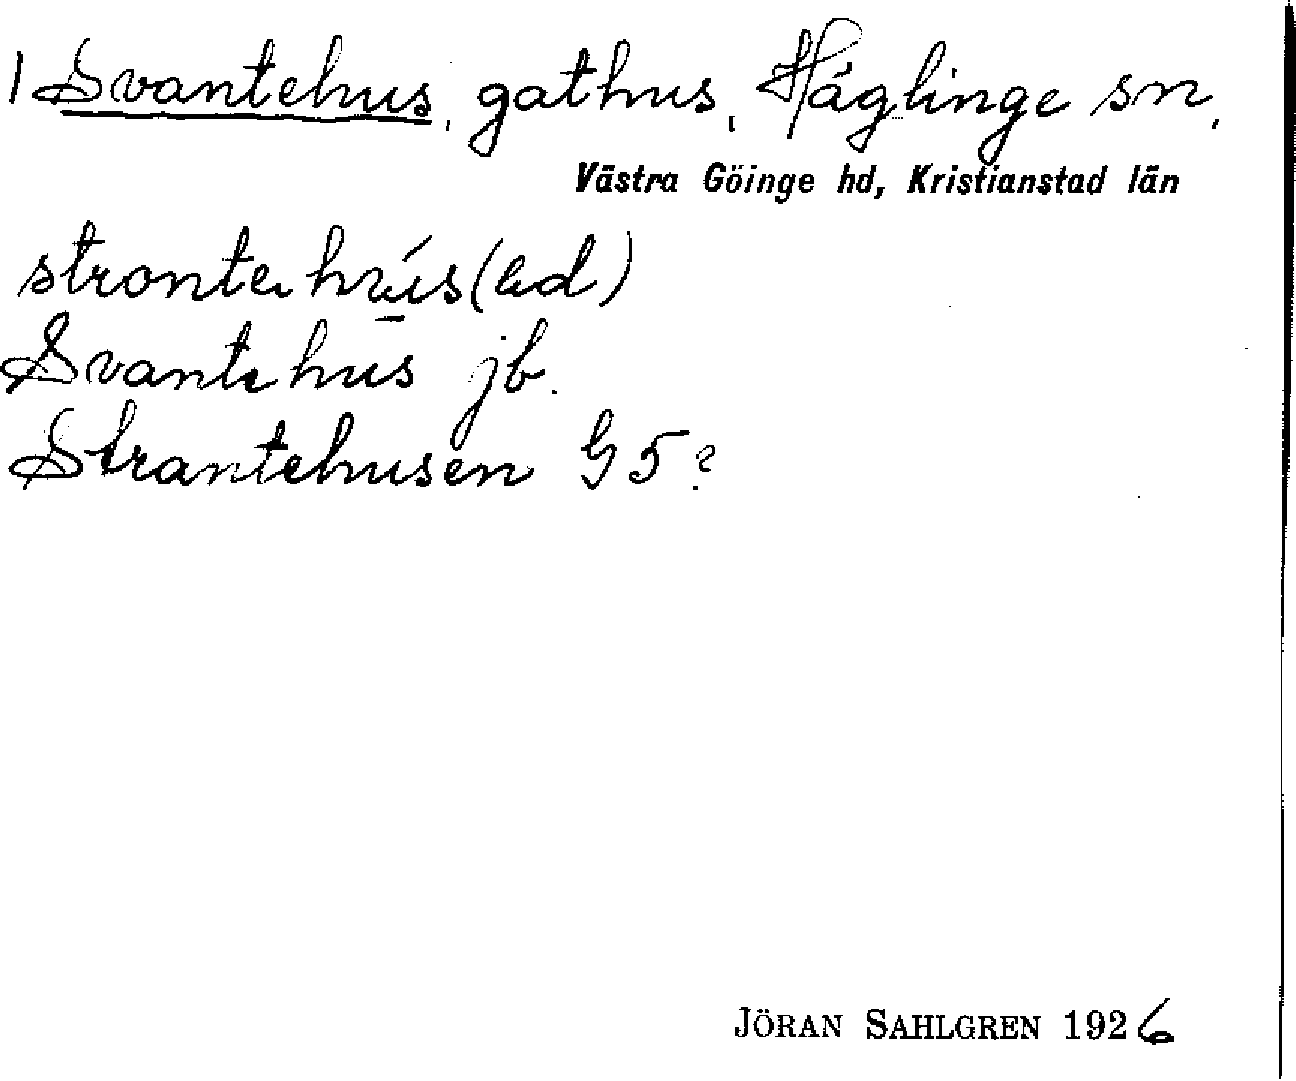 1 Svantehus, gathus, Häglinge sn,
Västra Göinge hd, Kristianstad län
Svantehus jb.
Strantehusen G5?
JÖRAN SAHLGREN 1926